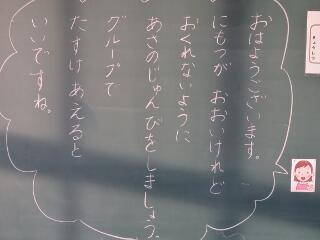 おはようございます。
にもつが おおいけれど
おくれないように
あさのじゅんびをしましょう。
グループで
たすけあえると
いいですね。